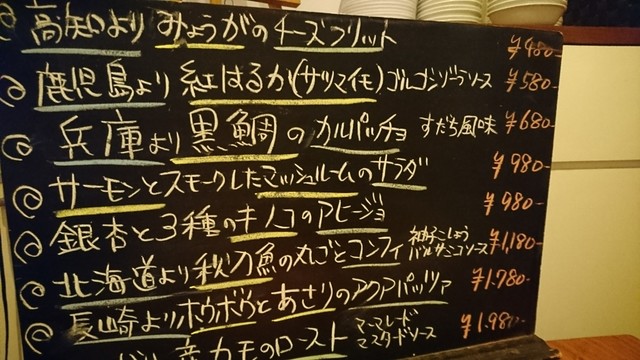 @ 高知より みょうがの チーズフリット ¥480-
@ 鹿児島より 紅はるか(サツマイモ) ゴルゴンゾーラソース ¥580-
@ 兵庫より 黒鯛 の カルパッチョ すだち風味 ¥680-
@ サーモンとスモークしたマッシュルームのサラダ ¥980-
@ 銀杏と3種のキノコのアヒージョ ¥980-
@ 北海道より 秋刀魚の丸ごとコンフィ 柚子こしょう バルサミコソース ¥1,180-
@ 長崎よりホウボウとあさりのアクアパッツァ ¥1.780-
産カモのロースト マーマレード マスタードソース ¥1.980-